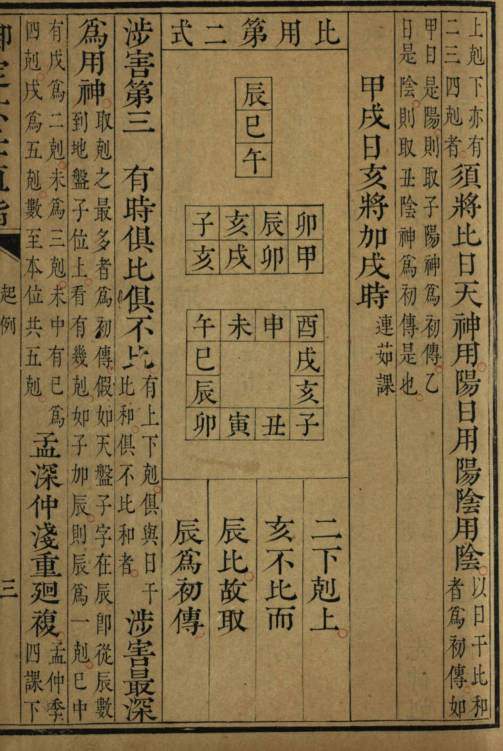 上尅下亦有
二三四尅者
須將比日天神用陽日用陽陰用陰
以日干比和
者爲初傳如
甲日是陽則取子陽神爲初傳乙
日是陰則取丑陰神爲初傳是也
甲戌日亥將加戌時
連茹課
比用第二式
辰
巳
午
子 亥 辰 卯
亥 戌 卯 甲
午 未 申 酉
巳 戌
辰 亥
卯 寅 丑 子
二下尅上
亥不比而
辰比故取
辰爲初傳
涉害第三 有時俱比俱不比
有上下尅俱與日干
比和俱不比和者
涉害最深
爲用神
取尅之最多者爲初傳假如天盤子字在辰即從辰數
到地盤子位上看有幾尅如子加辰則辰爲一尅巳中
有戊爲二尅未爲三尅未中有已爲
四尅戌爲五尅數至本位共五尅
孟深仲淺重廻複
孟仲季
四課下
起例
三